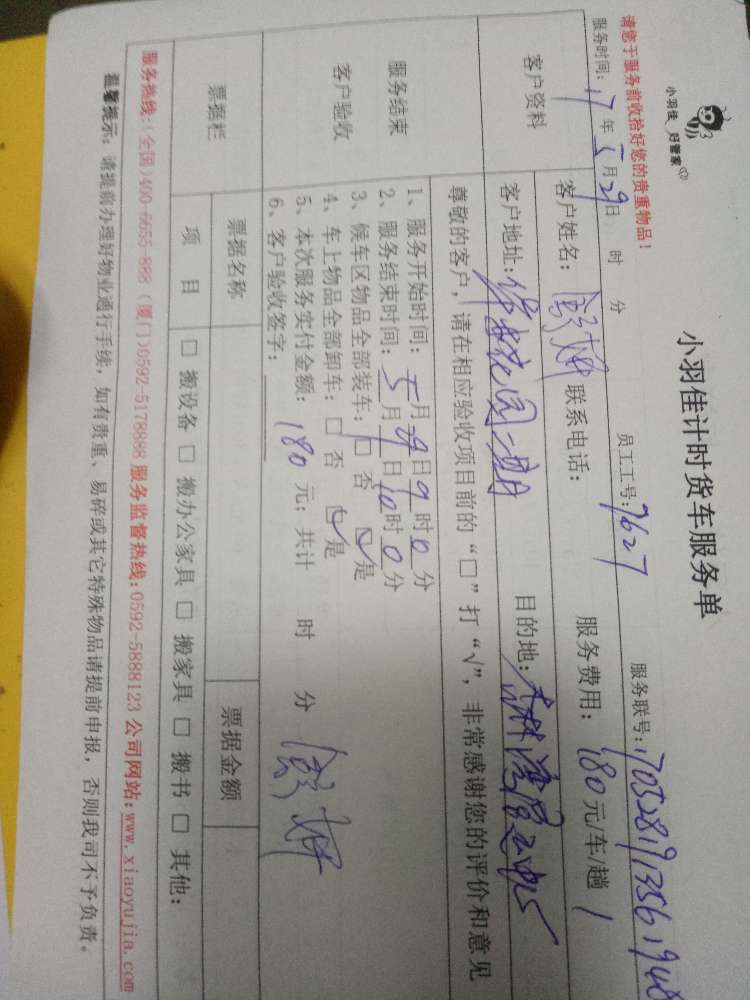 小羽佳 好管家
小羽佳计时货车服务单
请您于服务前收拾好您的贵重物品!
服务时间: 17年5月29日 时 分 员工工号: 7627 服务联号:
客户资料
客户姓名: 联系电话: 服务费用: 180元/车/趟
客户地址: 目的地:
尊敬的客户, 请在相应验收项目前的“□”打“√”, 非常感谢您的评价和意见
服务结束
客户验收
1、服务开始时间: 5月29日9时0分
2、服务结束时间: 时0分
3、候车区物品全部装车: □ 否 ☑ 是
4、车上物品全部卸车: □ 否 ☑ 是
5、本次服务实付金额: 180元; 共计 时 分
6、客户验收签字:
票据栏
票据名称 票据金额
项 目 □ 搬设备 □ 搬办公家具 □ 搬家具 □ 搬书 □ 其他:
服务热线:(全国)400-6655-888 (厦门)0592-5178888 服务监督热线:0592-5888123 公司网站:www.xiaoyujia.com
温馨提示: 请提前办理好物业通行手续, 如有贵重、易碎或其它特殊物品请提前申报, 否则我司不予负责。